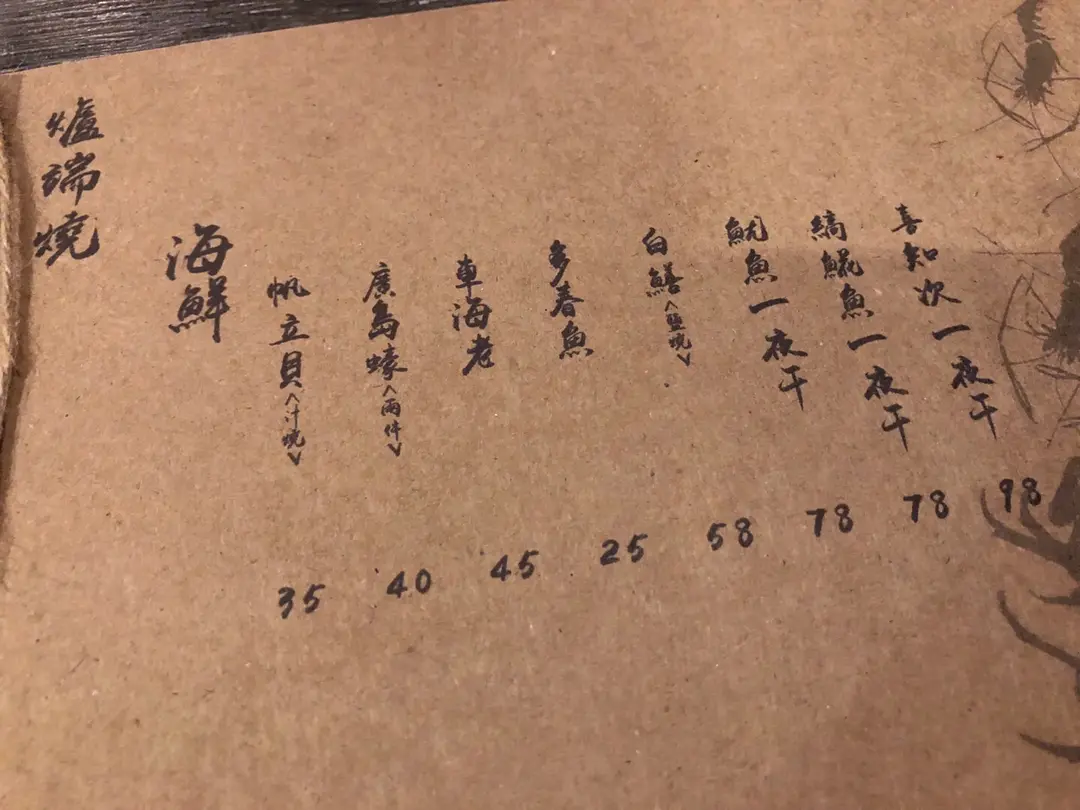 爐端燒
海鮮
帆立貝<汁燒> 35
廣島蠔<兩件> 40
車海老 45
多春魚 25
白鱔<鹽燒> 58
魷魚一夜干 78
縞𩽾魚一夜干 78
喜知次一夜干 98